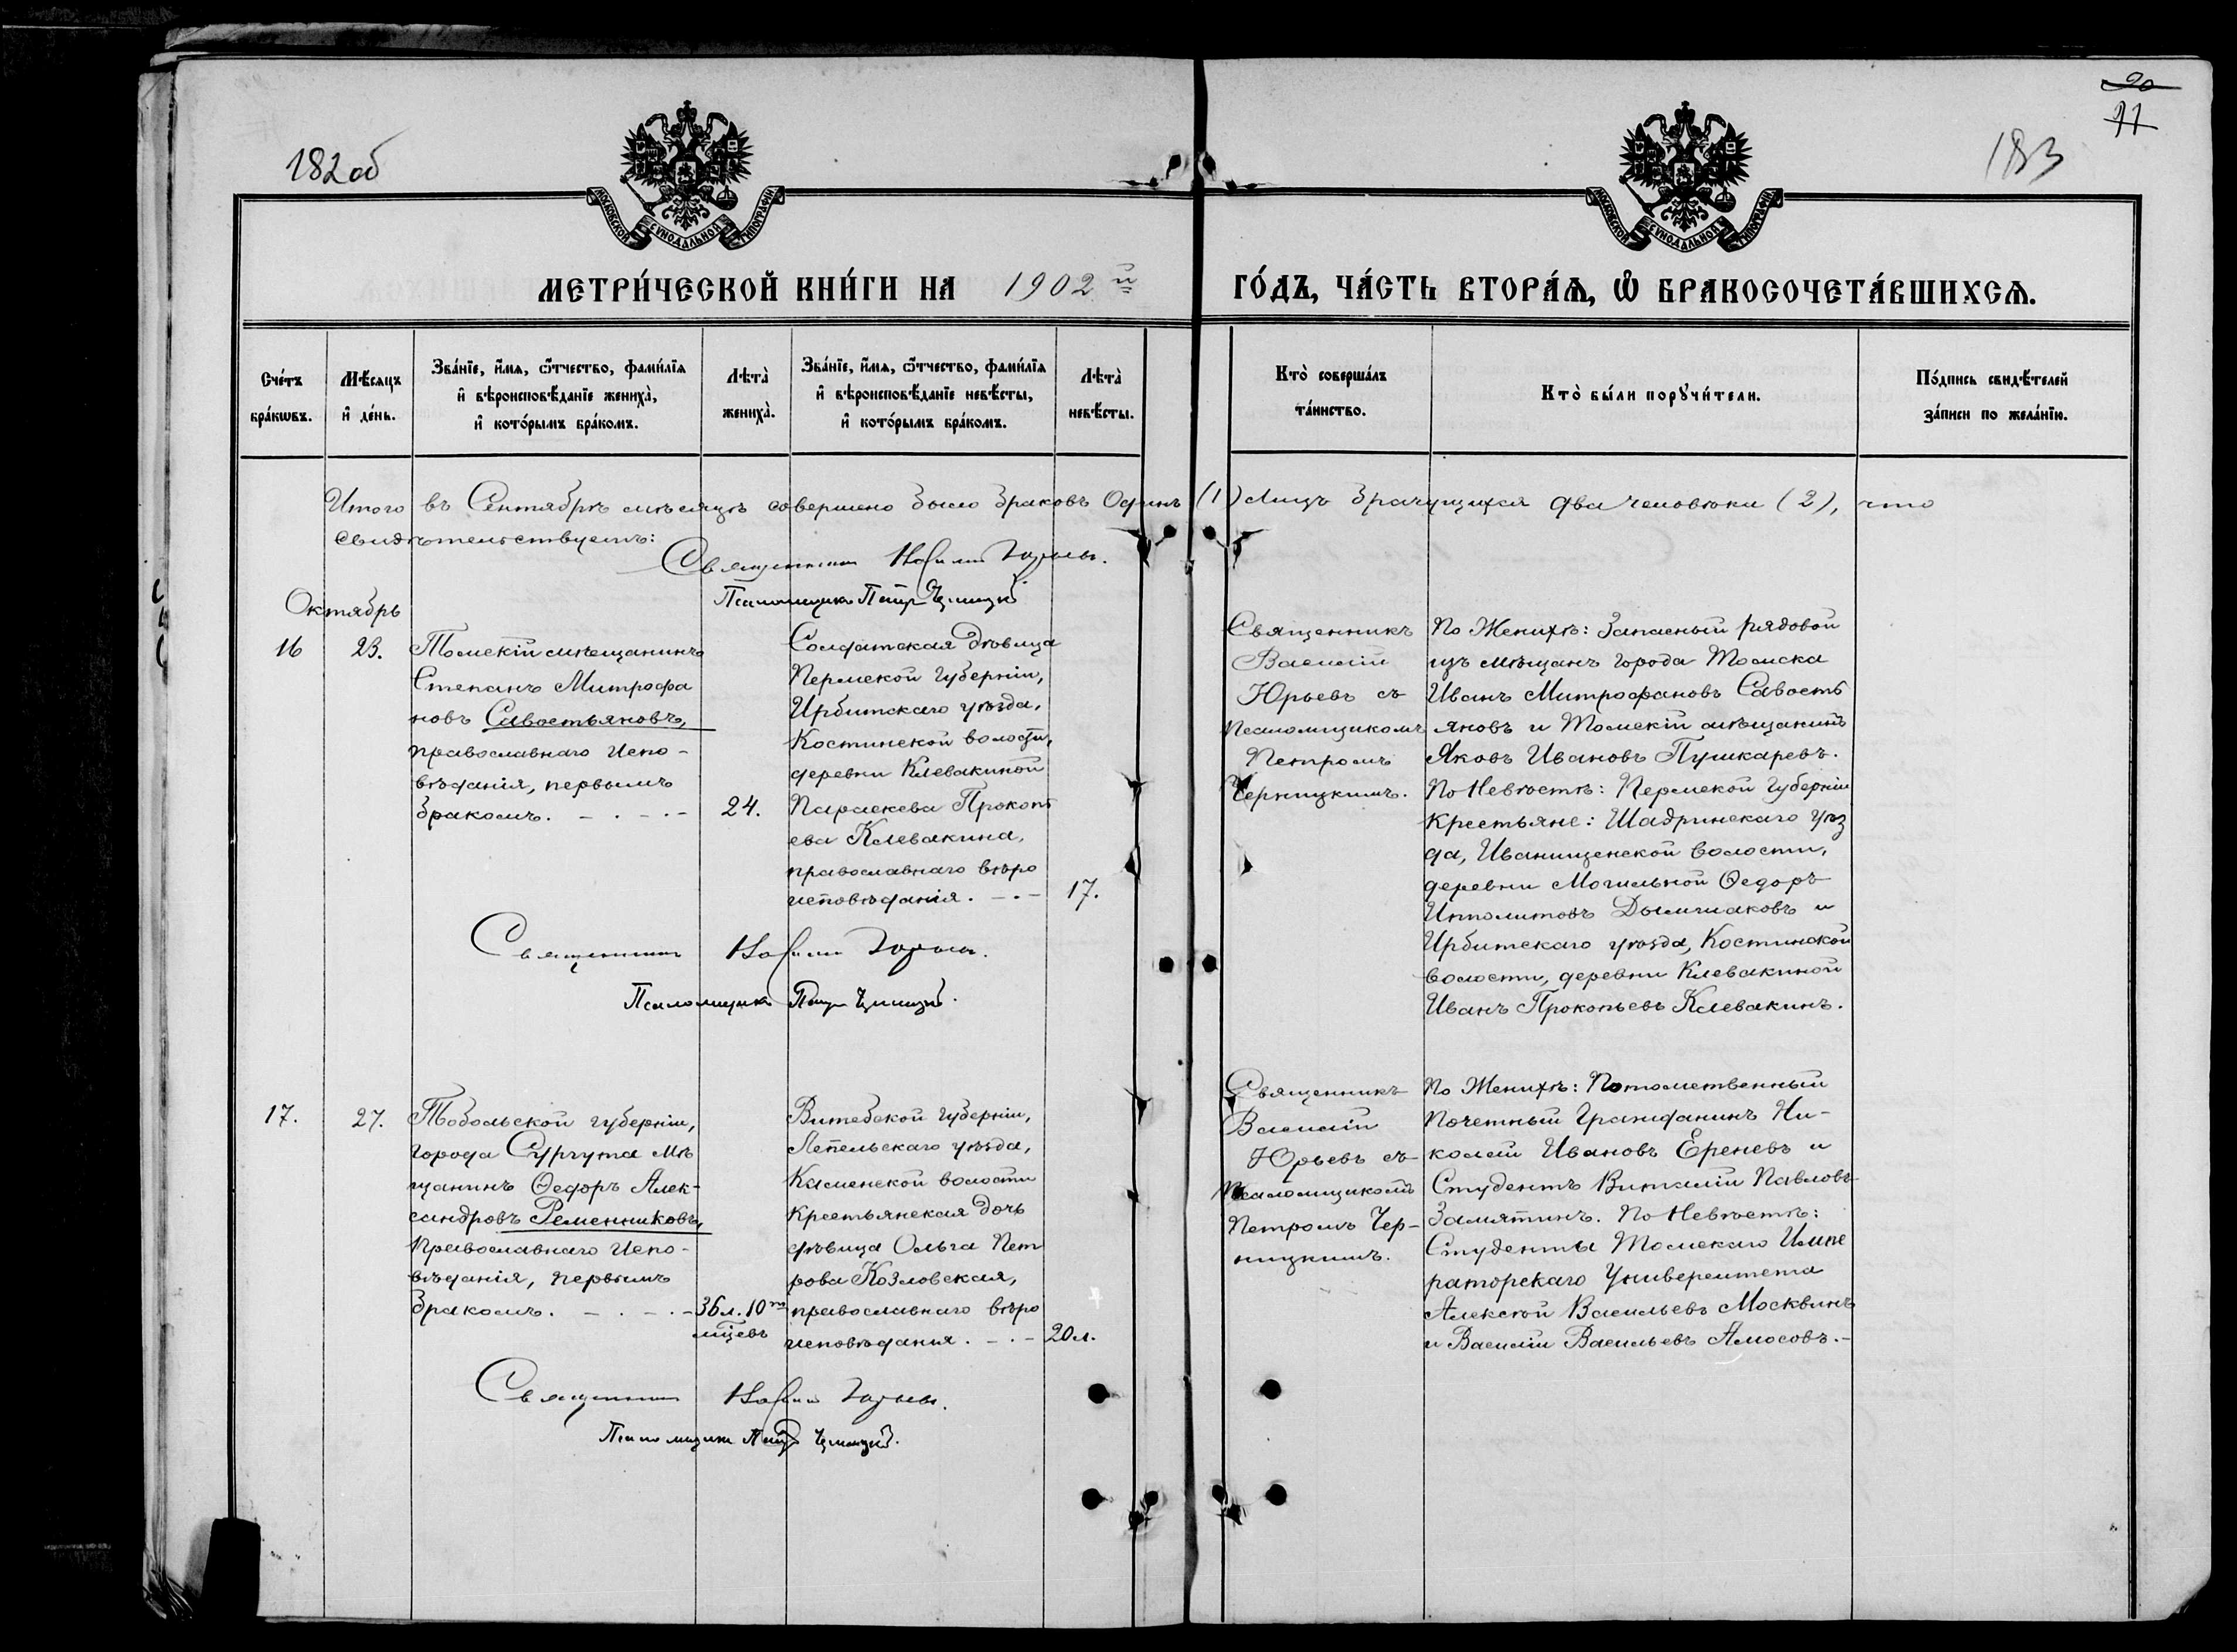 182об
20
21
183
МОСКОВСКОЙ СѴНОДАЛЬНОЙ ТИПОГРАФІИ
МОСКОВСКОЙ СѴНОДАЛЬНОЙ ТИПОГРАФІИ
МЕТРИ́ЧЕСКОЙ КНИ́ГИ НА 1902й
ГО́ДЪ, ЧА́СТЬ ВТОРА́Ѧ, Ѽ БРАКОСОЧЕТА́ВШИХСѦ.
Сче́тъ
бра́кѡвъ.
Мѣ́сяцъ
и҆ де́нь.
Зва́нїе, и҆́мѧ, ѻ҆́тчество, фами́лїѧ
и҆ вѣроисповѣ́данїе жениха̀,
и҆ кото́рымъ бра́комъ.
Лѣта̀
жениха̀.
Зва́нїе, и҆́мѧ, ѻ҆́тчество, фами́лїѧ
и҆ вѣроисповѣ́данїе невѣ́сты,
и҆ кото́рымъ бра́комъ.
Лѣта̀
невѣ́сты.
Кто̀ соверша́лъ
та́инство.
Кто̀ бы́ли порꙋчи́тели.
По́дпись свидѣ́телей
за́писи по жела́нїю.
Итого въ Сентябрѣ мѣсяцѣ совершено было браковъ Одинъ (1) Лицъ брачущихся два человѣка (2), что
свидѣтельствуетъ:
Священникъ Василій Юрьевъ.
Псаломщикъ Петръ Черницкій
Октябрь
16
23.
Томскій мѣщанинъ
Степанъ Митрофа
новъ Савостьяновъ,
православнаго испо-
вѣданія, первымъ
бракомъ. - . - . -
24.
Солдатская дѣвица
Пермской губерніи,
Ирбитскаго уѣзда,
Костинской волости,
деревни Клевакиной
Параскева Прокопь
ева Клевакина,
православнаго вѣро
исповѣданія. - . -
17.
Священникъ
Василій
Юрьевъ съ
псаломщикомъ
Петромъ
Черницкимъ.
По Женихѣ: Запасный рядовой
изъ мѣщанъ города Томска
Иванъ Митрофановъ Савость
яновъ и Томскій мѣщанинъ
Яковъ Ивановъ Пушкаревъ.
По Невѣстѣ: Пермской губерніи
Крестьяне: Шадринскаго уѣз
да, Иванищенской волости,
деревни Могильной Ѳедоръ
Ипполитовъ Дымшаковъ и
Ирбитскаго уѣзда, Костинской
волости, деревни Клевакиной
Иванъ Прокопьевъ Клевакинъ.
Священникъ Василій Юрьевъ.
Псаломщикъ Петръ Черницкій.
17.
27.
Тобольской губерніи,
города Сургута мѣ
щанинъ Ѳедоръ Алек-
сандровъ Ременниковъ,
православнаго испо-
вѣданія, первымъ
бракомъ. - . - . -
36 л. 10 ти
мцевъ
Витебской губерніи,
Лепельскаго уѣзда,
Каменской волости
крестьянская дочь
дѣвица Ольга Пет
рова Козловская,
православнаго вѣро
исповѣданія. - . -
20 л.
Священникъ
Василій
Юрьевъ съ
псаломщикомъ
Петромъ Чер-
ницкимъ.
По Женихѣ: Потомственный
Почетный Гражданинъ Ни-
колай Ивановъ Ереневъ и
Студентъ Виталій Павловъ
Замятинъ. По Невѣстѣ:
Студенты Томскаго Импе
раторскаго Университета
Алексѣй Васильевъ Москвинъ
и Василій Васильевъ Амосовъ. -
Священникъ Василій Юрьевъ.
Псаломщикъ Петръ Черницкій.